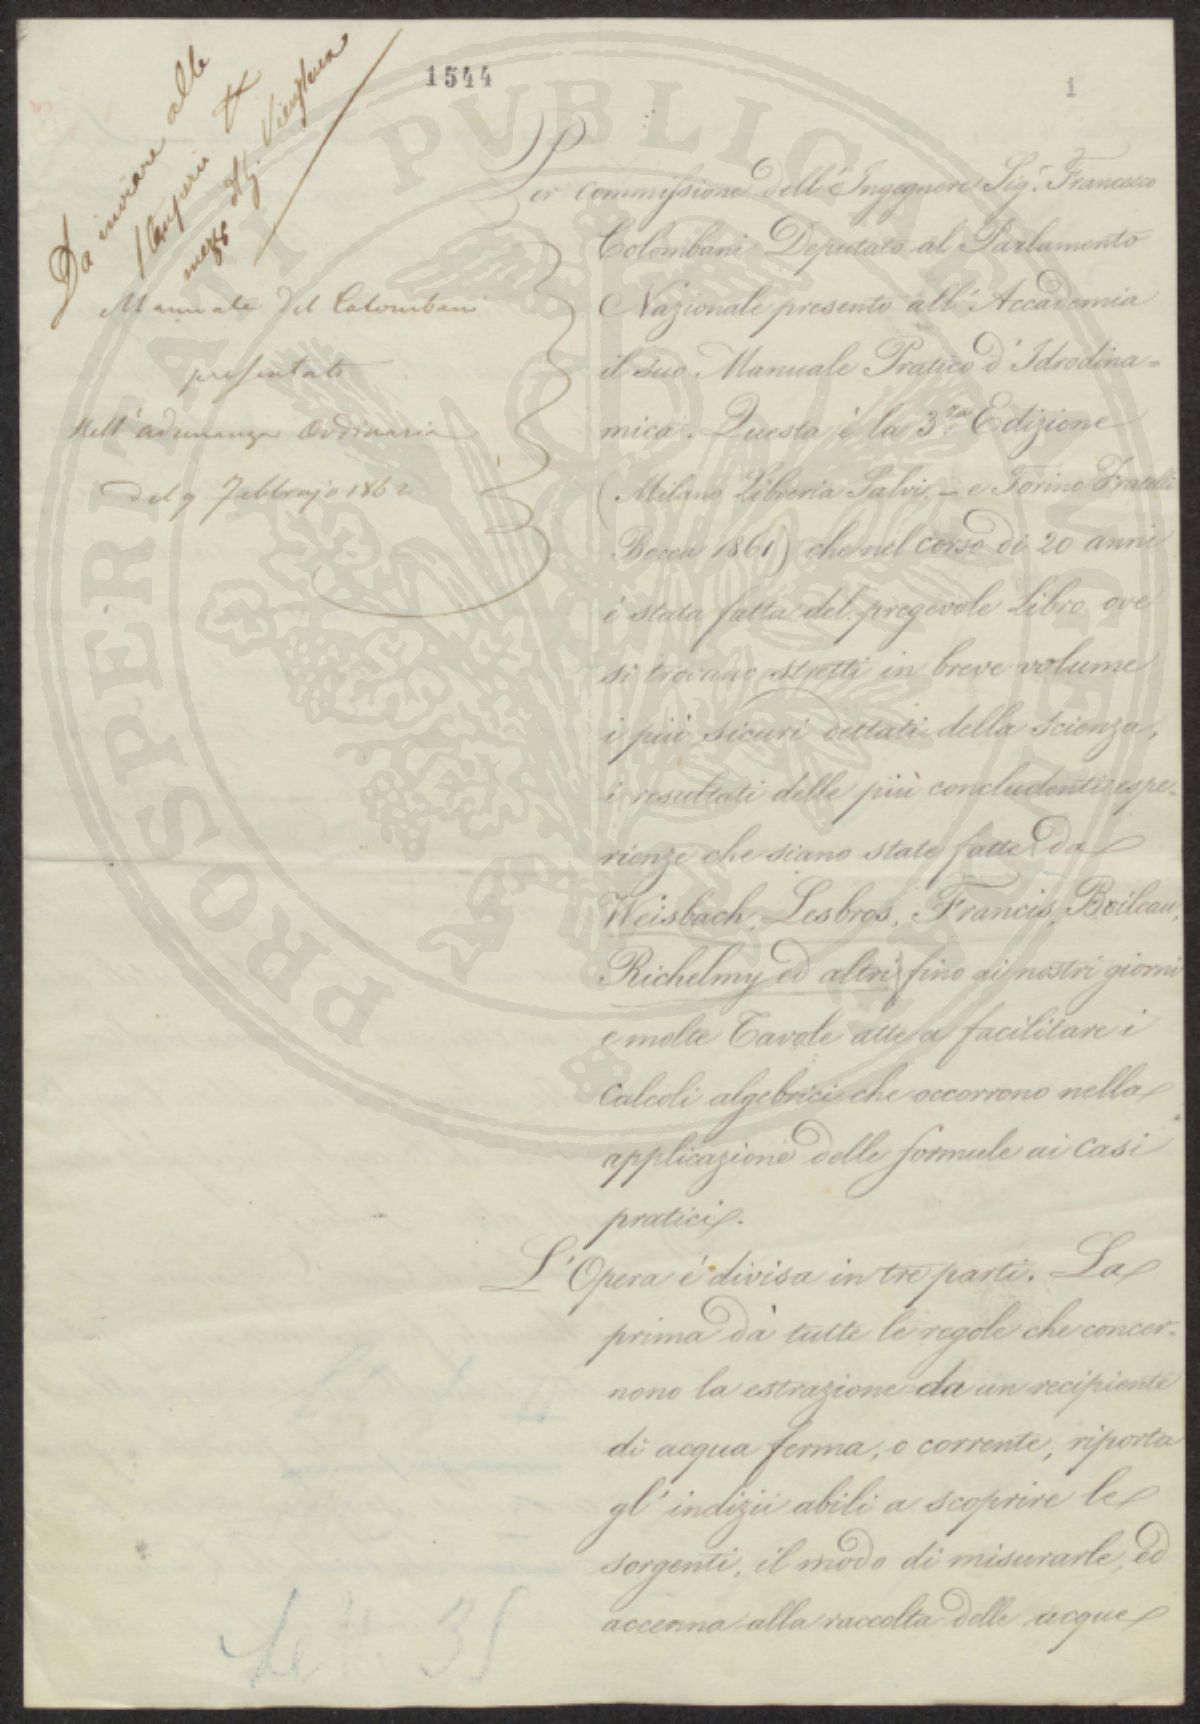 1544
1
Da inviare alle
Stamperie
mezzo
Manuale del Colombani
presentato
Nell'adunanza Ordinaria
del 9 Febbrajo 1862
Per commissione dell'Ingegnere Sig.r Francesco
Colombani Deputato al Parlamento
Nazionale presento all'Accademia
il suo Manuale Pratico d'Idrodina=
mica. Questa è la 3.za Edizione
(Milano Libreria Salvi, – e Torino Fratelli
Bocca 1861) che nel corso di 20 anni
è stata fatta del pregevole Libro ove
si trovano stretti in breve volume
i più sicuri dettati della scienza,
i resultati delle più concludenti espe-
rienze che siano state fatte da
Weisbach, Lesbros, Francis, Boileau,
Richelmy ed altri fino ai nostri giorni
e molte Tavole atte a facilitare i
Calcoli algebrici che occorrono nella
applicazione delle formule ai casi
pratici.
L'Opera è divisa in tre parti. La
prima dà tutte le regole che concer-
nono la estrazione da un recipiente
di acqua ferma, o corrente, riporta
gl'indizii abili a scoprire le
sorgenti, il modo di misurarle, ed
accenna alla raccolta delle acque
Lett. 35
PROSPERITATI PUBLICAE AUGENDAE